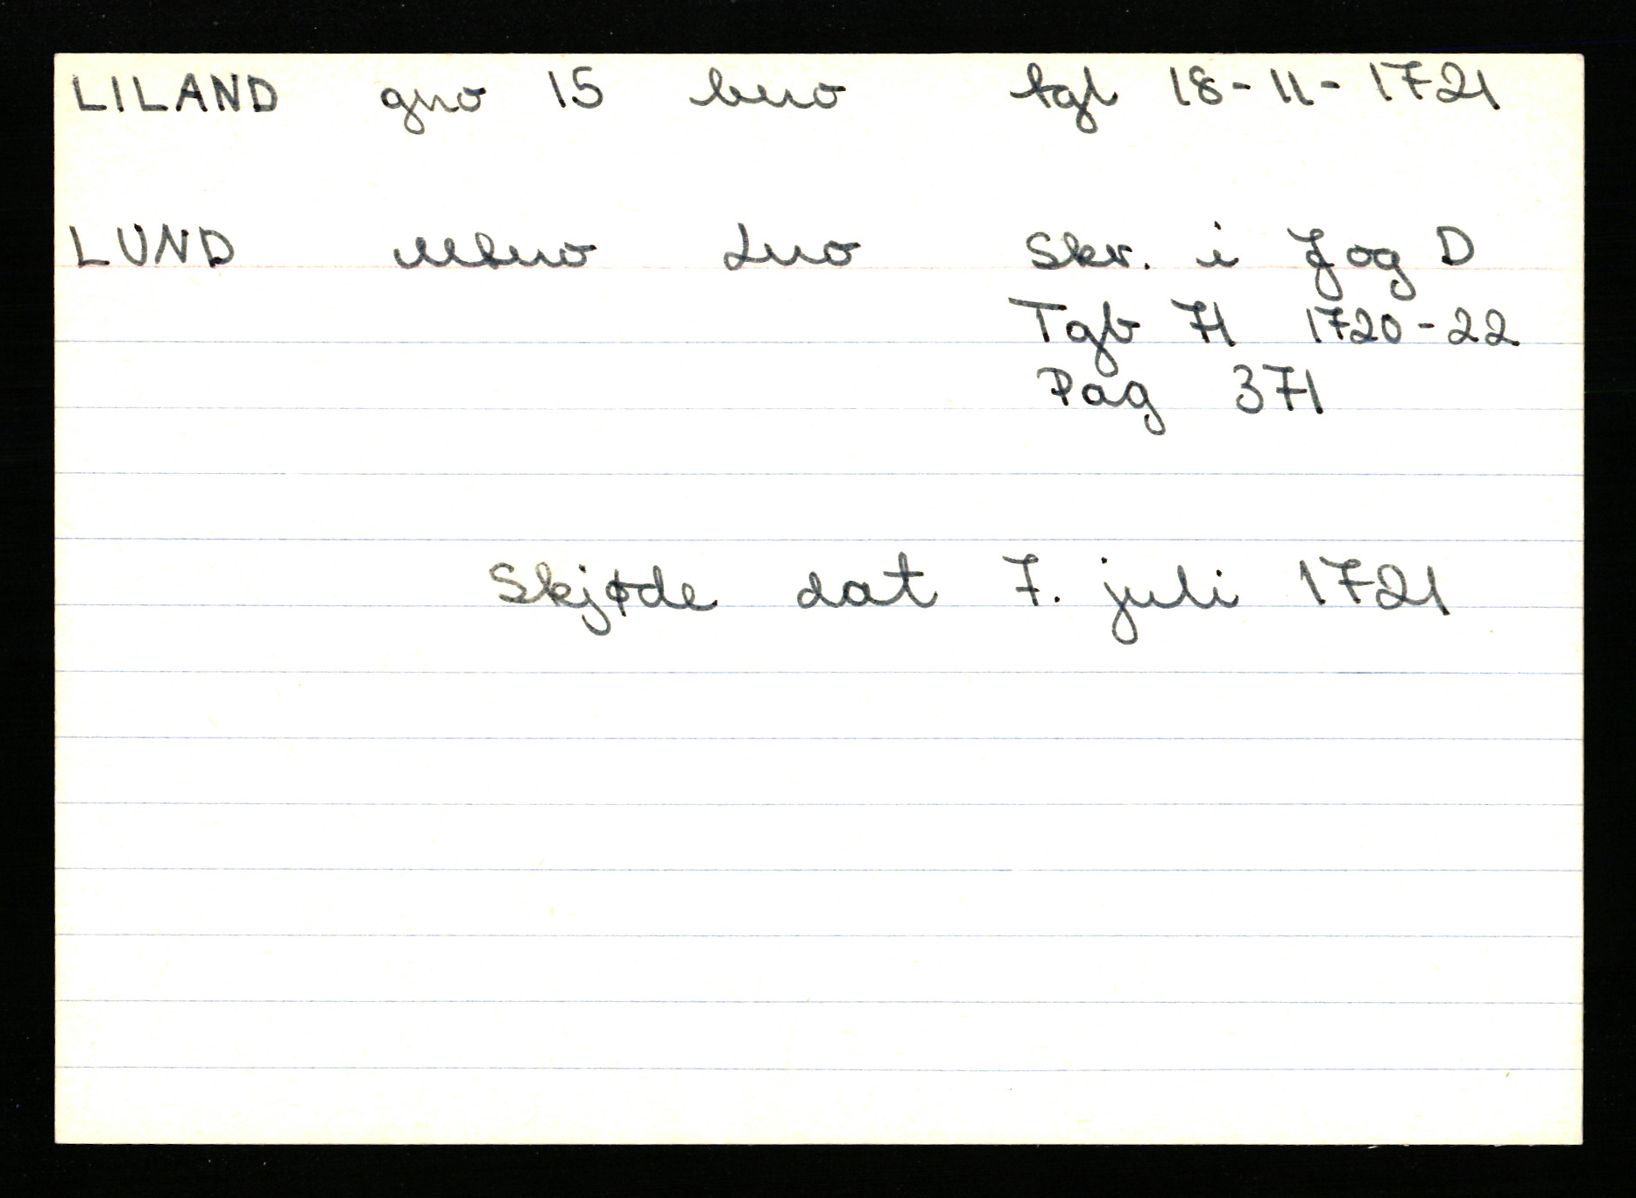 LILAND gno 15 bno tgl 18-11-1721
LUND Mbno Lno Skr. i J og D
Tgb 71 1720-22
Pag 371
Skjøde dat 7. juli 1721